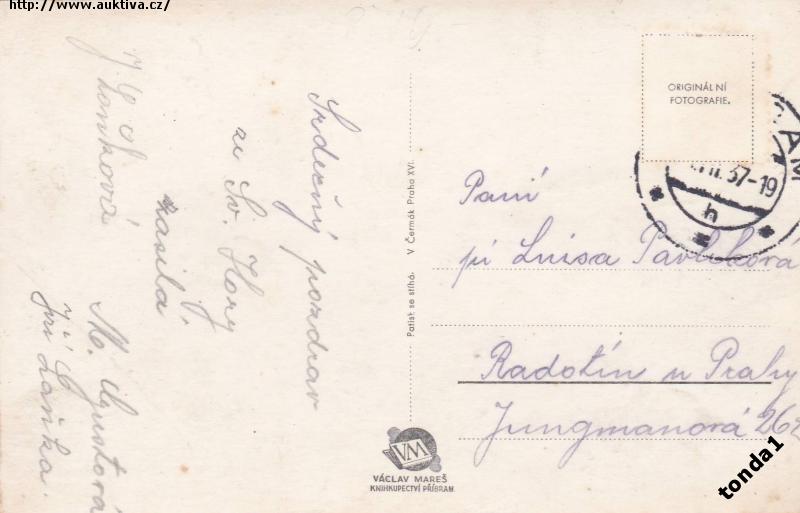 http://www.auktiva.cz/
Srdečný pozdrav
ze Sv. Hory
zasílá
J.
Laňková
M. Agustová
Jiří Laňka.
Patisk se stíhá. V Čermák Praha XVI.
VM
VÁCLAV MAREŠ
KNIHKUPECTVÍ PŘÍBRAM.
ORIGINÁLNÍ
FOTOGRAFIE.
37-19
h
Paní
pí Luisa Pavlíková
Radotín u Prahy
Jungmanová 262
tonda1